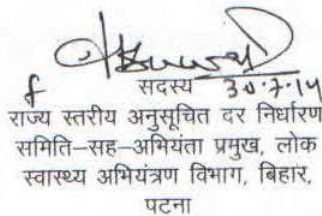 सदस्य 30.7.14
राज्य स्तरीय अनुसूचित दर निर्धारण
समिति–सह–अभियंता प्रमुख, लोक
स्वास्थ्य अभियंत्रण विभाग, बिहार,
पटना